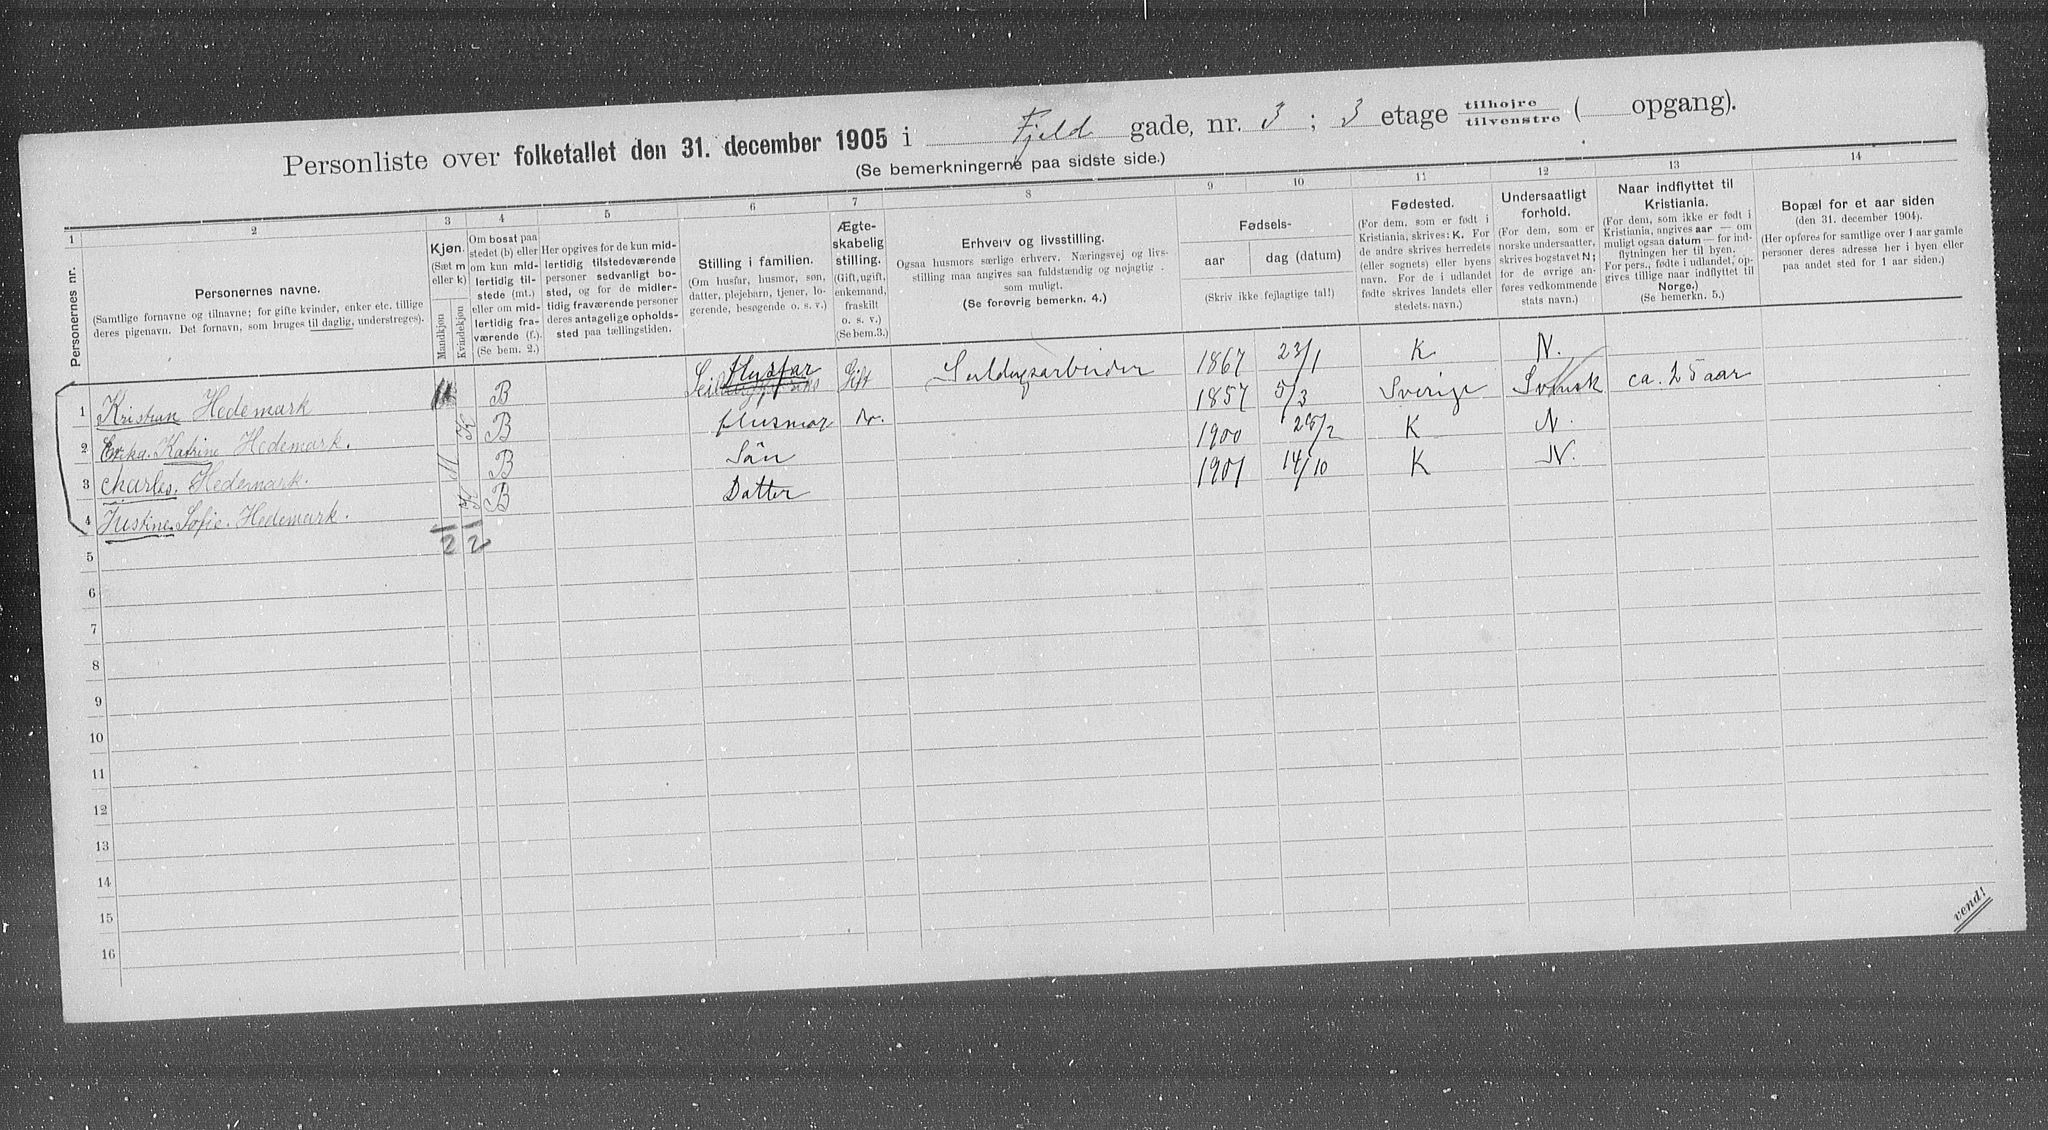 Personliste over folketallet den 31. december 1905 i Fjeld gade, nr. 3 ; 3 etage tilhøjre tilvenstre ( opgang).
(Se bemerkningerne paa sidste side.)
1 2 3 4 5 6 7 8 9 10 11 12 13 14
Personernes nr.
Personernes navne.
(Samtlige fornavne og tilnavne; for gifte kvinder, enker etc. tillige
deres pigenavn. Det fornavn, som bruges til daglig, understreges).
Kjøn.
(Sæt m
eller k)
Mandkjøn
Kvindekjøn
Om bosat paa
stedet (b) eller
om kun mid-
lertidig til-
stede (mt.)
eller om mid-
lertidig fra-
værende (f.).
(Se bem. 2.)
Her opgives for de kun mid-
lertidig tilstedeværende
personer sedvanligt bo-
sted, og for de midler-
tidig fraværende personer
deres antagelige opholds-
sted paa tællingstiden.
Stilling i familien.
(Om husfar, husmor, søn,
datter, plejebarn, tjener, lo-
gerende, besøgende o. s. v.)
Ægte-
skabelig
stilling.
(Gift, ugift,
enkemand,
fraskilt
o. s. v.)
(Se bem.3.)
Erhverv og livsstilling.
Ogsaa husmors særlige erhverv. Næringsvej og livs-
stilling maa angives saa fuldstændig og nøjagtig
som muligt.
(Se forøvrig bemerkn. 4.)
Fødsels-
aar
dag (datum)
(Skriv ikke fejlagtige tal!)
Fødested.
(For dem, som er født i
Kristiania, skrives: K. For
de andre skrives herredets
(eller sognets) eller byens
navn. For de i udlandet
fødte skrives landets eller
stedets navn.)
Undersaatligt
forhold.
(For dem, som er
norske undersaatter,
skrives bogstavet N;
for de øvrige an-
føres vedkommende
stats navn.)
Naar indflyttet til
Kristiania.
(For dem, som ikke er født i
Kristiania, angives aar — om
muligt ogsaa datum — for ind-
flytningen her til byen.
For pers., fødte i udlandet, op-
gives tillige naar indflyttet til
Norge.)
(Se bemerkn. 5.)
Bopæl for et aar siden
(den 31. december 1904).
(Her opføres for samtlige over 1 aar gamle
personer deres adresse her i byen eller
paa andet sted for 1 aar siden.)
1 Kristian Hedemark M B Husfar Gift 1867 23/1 K N.
2 Erika Katrine Hedemark. K B Husmor 1857 5/3 Sverige Svensk ca. 25 aar
3 Charles. Hedemark. M B Sön 1900 28/2 K N.
4 Justine. Sofie. Hedemark. K B Datter 1901 14/10 K N.
2 2
5
6
7
8
9
10
11
12
13
14
15
16
vend!